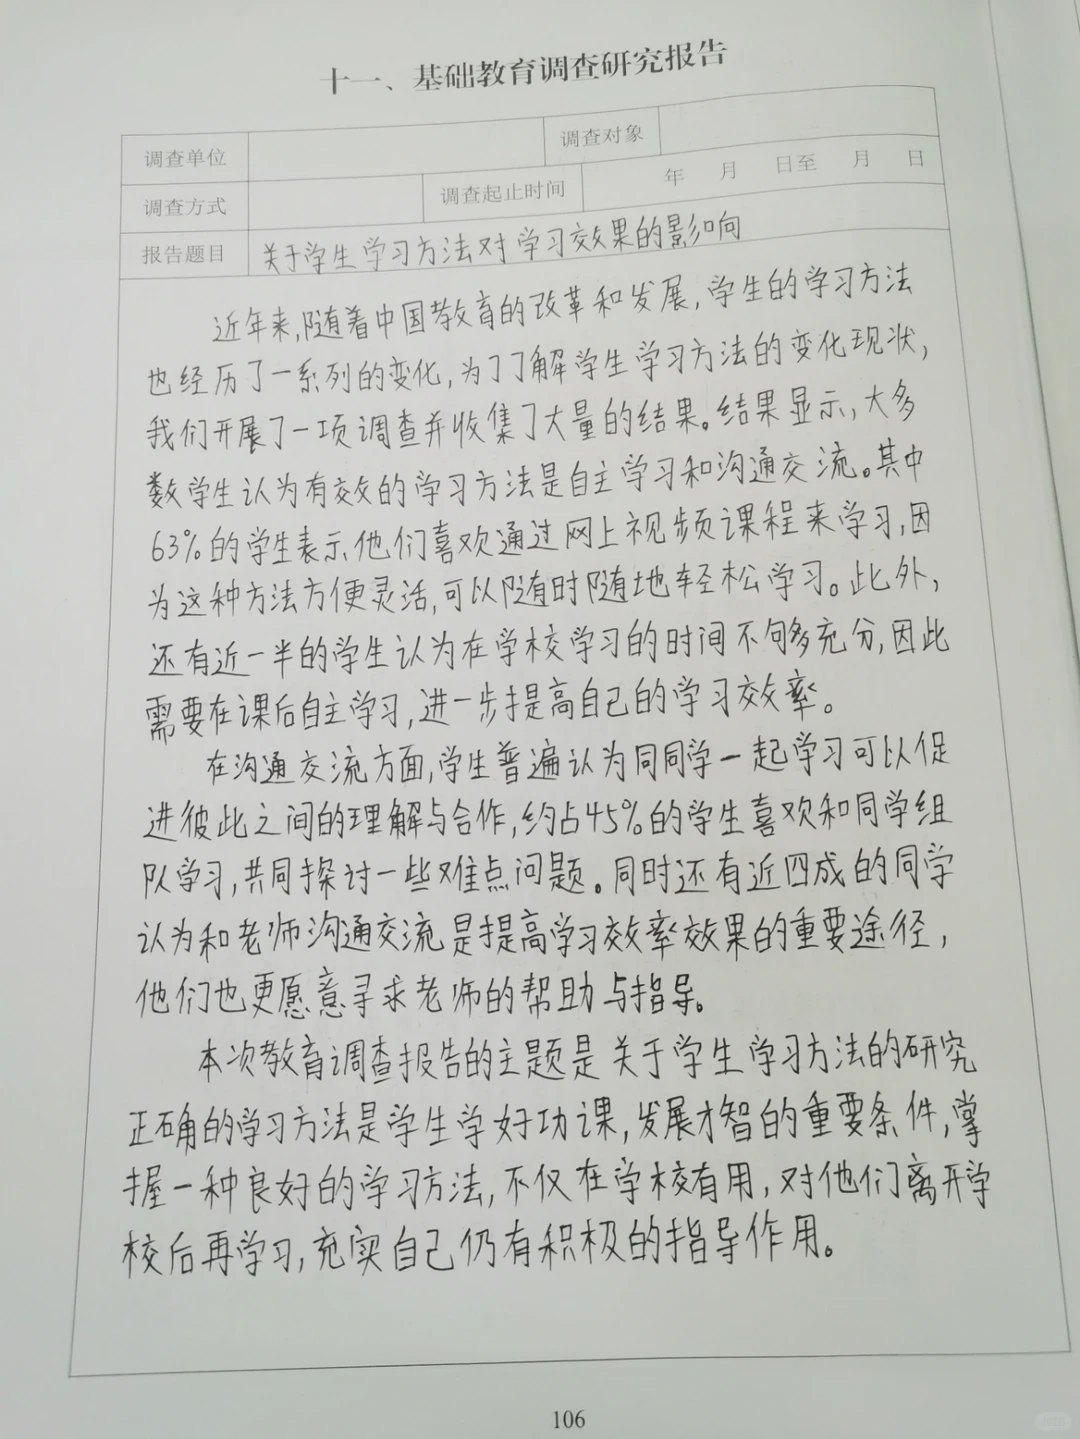 十一、基础教育调查研究报告
调查单位 调查对象
调查方式 调查起止时间 年 月 日至 月 日
报告题目 关于学生学习方法对学习效果的影响
近年来,随着中国教育的改革和发展,学生的学习方法
也经历了一系列的变化,为了了解学生学习方法的变化现状,
我们开展了一项调查并收集了大量的结果。结果显示,大多
数学生认为有效的学习方法是自主学习和沟通交流。其中
63%的学生表示他们喜欢通过网上视频课程来学习,因
为这种方法方便灵活,可以随时随地轻松学习。此外,
还有近一半的学生认为在学校学习的时间不够充分,因此
需要在课后自主学习,进一步提高自己的学习效率。
在沟通交流方面,学生普遍认为同同学一起学习可以促
进彼此之间的理解与合作,约占45%的学生喜欢和同学组
队学习,共同探讨一些难点问题。同时还有近四成的同学
认为和老师沟通交流是提高学习效率效果的重要途径,
他们也更愿意寻求老师的帮助与指导。
本次教育调查报告的主题是关于学生学习方法的研究
正确的学习方法是学生学好功课,发展才智的重要条件,掌
握一种良好的学习方法,不仅在学校有用,对他们离开学
校后再学习,充实自己仍有积极的指导作用。
106